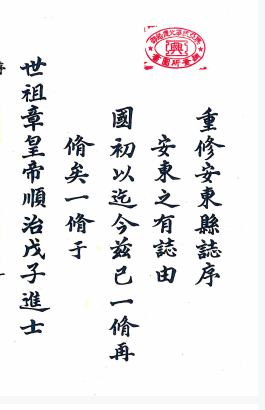 重修安東縣誌序
安東之有誌由
國初以迄今茲已一脩再
脩矣一脩于
世祖章皇帝順治戊子進士